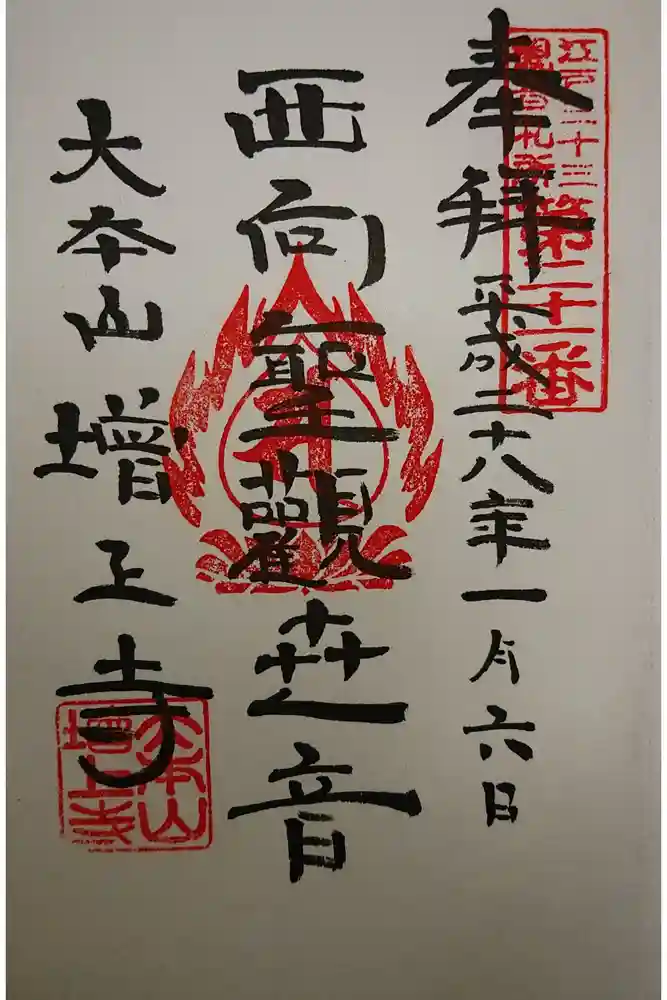 江戸三十三
観音札所
第二十一番
奉拝
平成二十八年一月六日
西向聖觀世音
大本山増上寺
大本山
増上寺